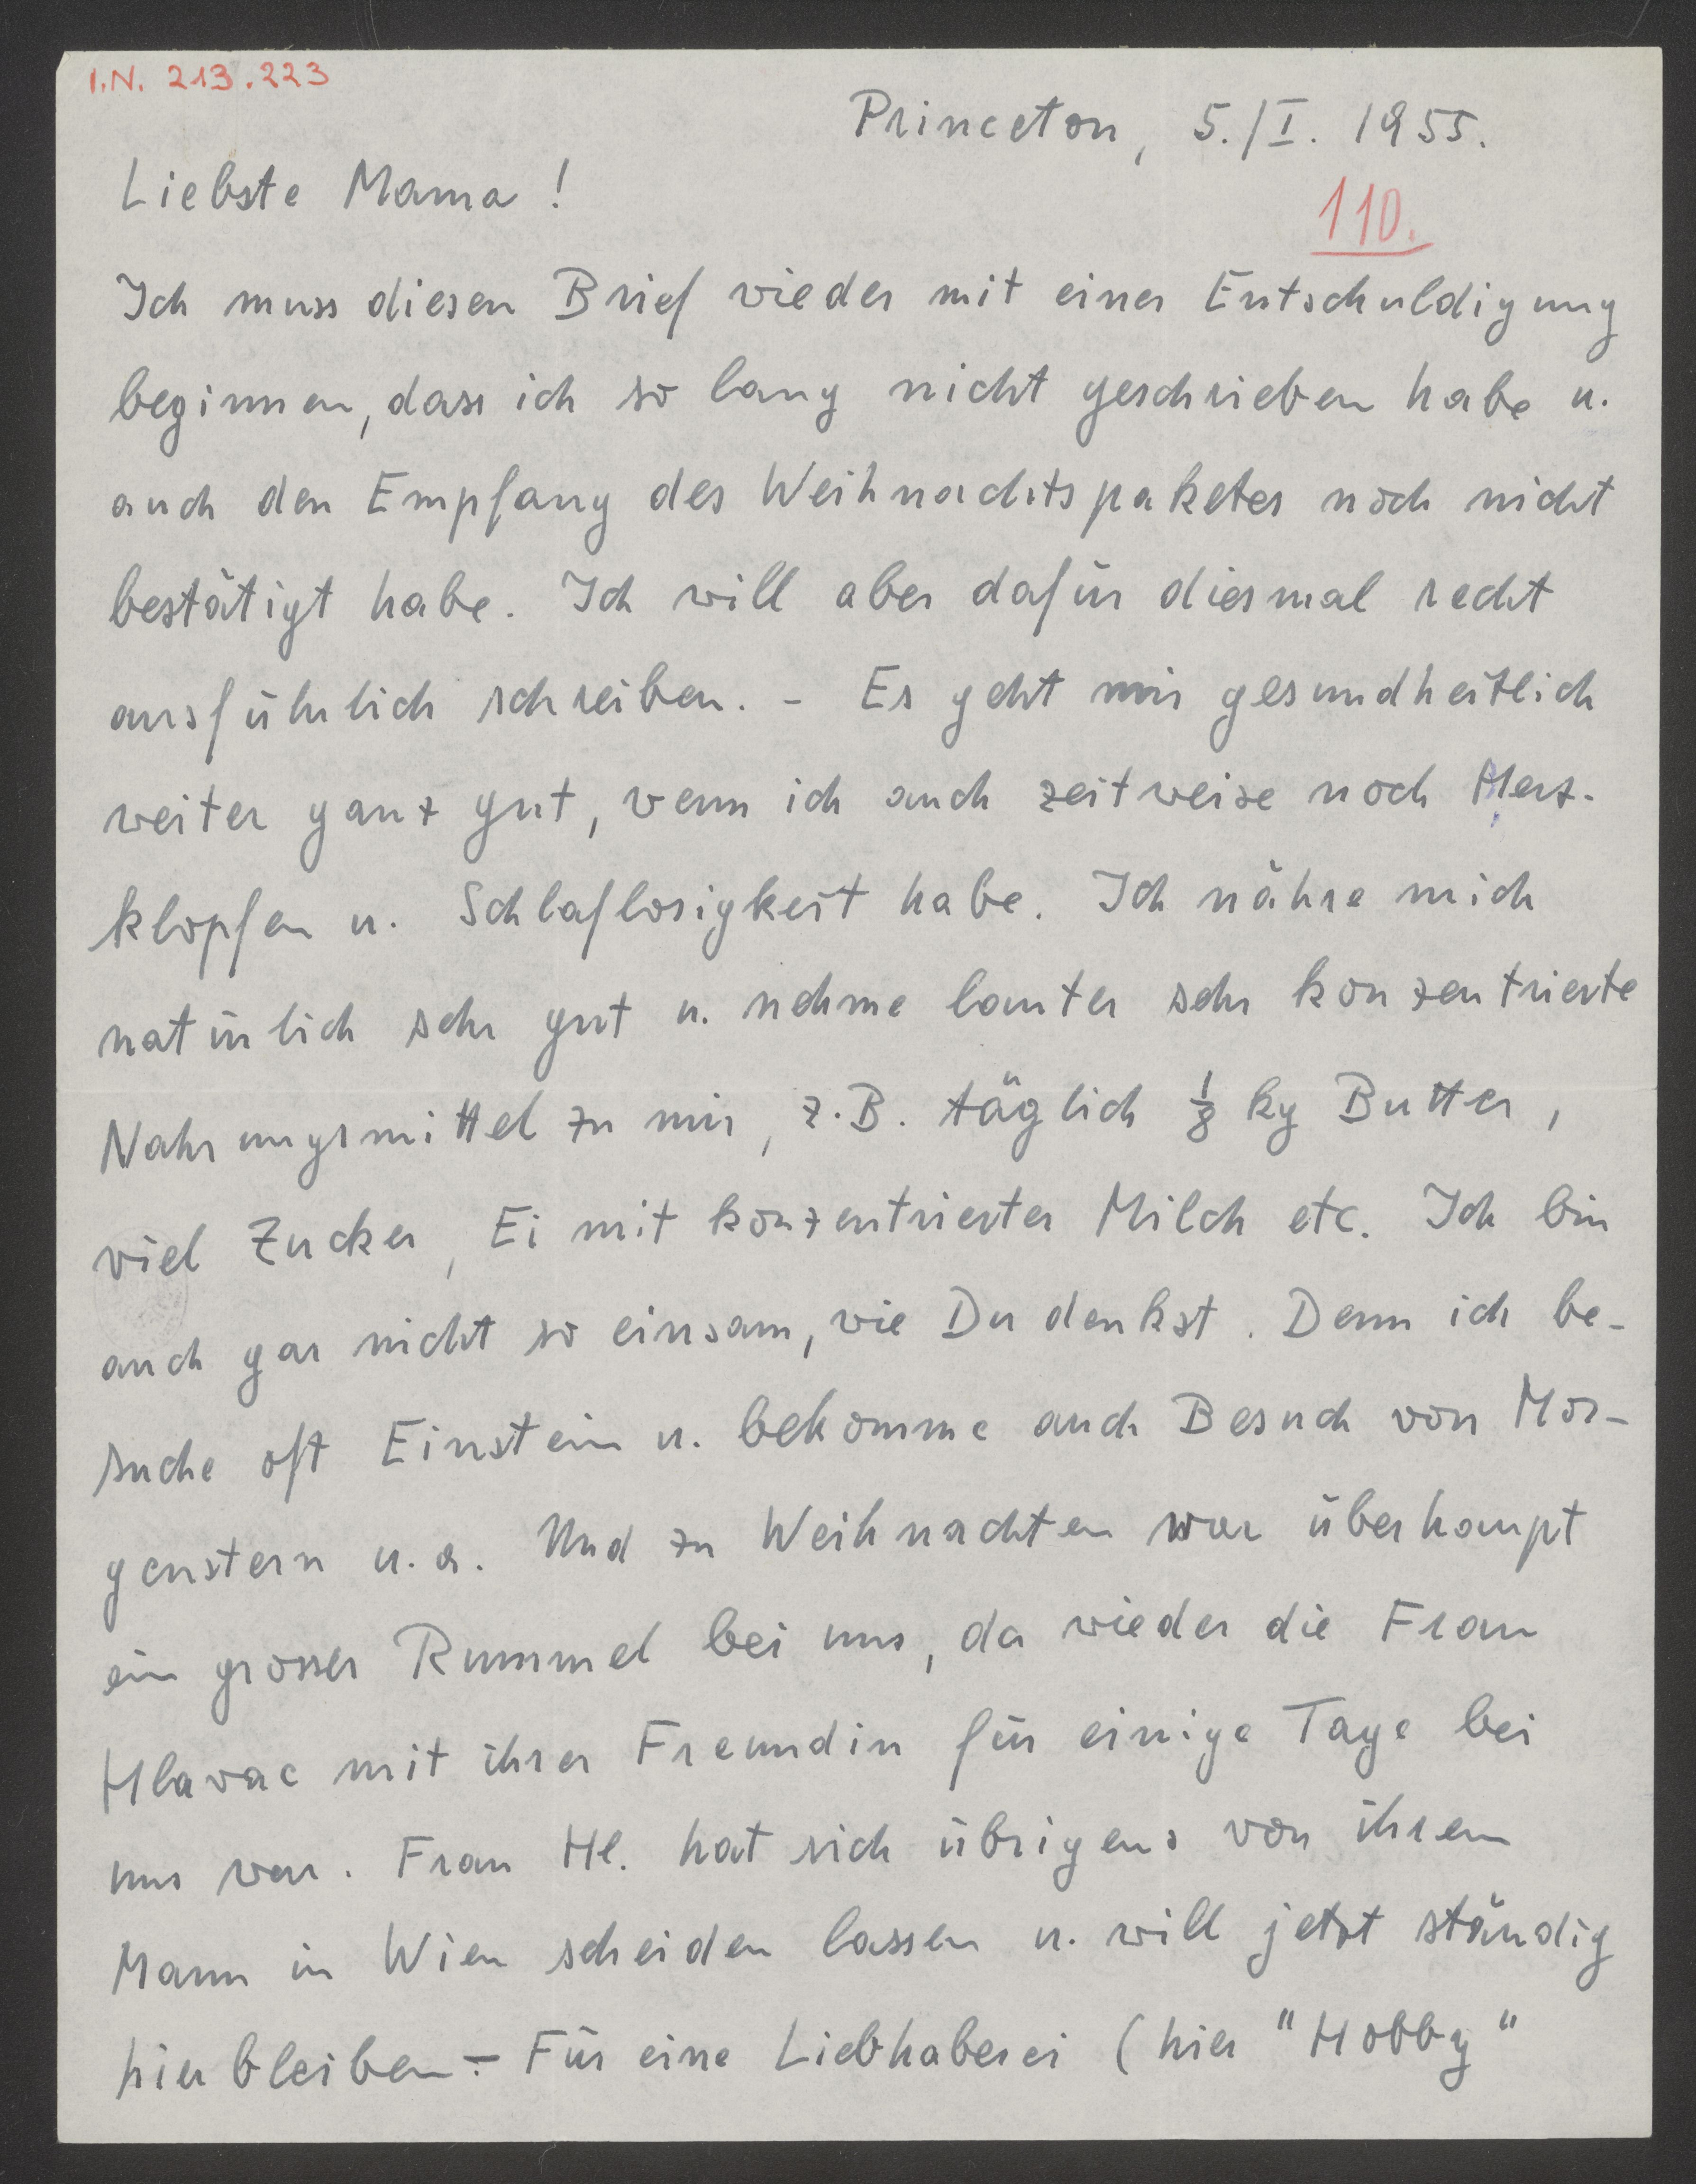 I.N. 213.223
Princeton, 5./I. 1955.
Liebste Mama!
110.
Ich muss diesen Brief wieder mit einer Entschuldigung
beginnen, dass ich so lang nicht geschrieben habe u.
auch den Empfang des Weihnachtspaketes noch nicht
bestätigt habe. Ich will aber dafür diesmal recht
ausführlich schreiben. - Es geht mir gesundheitlich
weiter ganz gut, wenn ich auch zeitweise noch Herz-
klopfen u. Schlaflosigkeit habe. Ich nähre mich
natürlich sehr gut u. nehme lauter sehr konzentrierte
Nahrungsmittel zu mir, z.B. täglich 1/8 kg Butter,
viel Zucker, Ei mit konzentrierter Milch etc. Ich bin
auch gar nicht so einsam, wie Du denkst. Denn ich be-
suche oft Einstein u. bekomme auch Besuch von Mor-
genstern u.a. Und zu Weihnachten war überhaupt
ein grosser Rummel bei uns, da wieder die Frau
Hlavac mit ihrer Freundin für einige Tage bei
uns war. Frau Hl. hat sich übrigens von ihrem
Mann in Wien scheiden lassen u. will jetzt ständig
hier bleiben. - Für eine Liebhaberei (hier "Hobby"